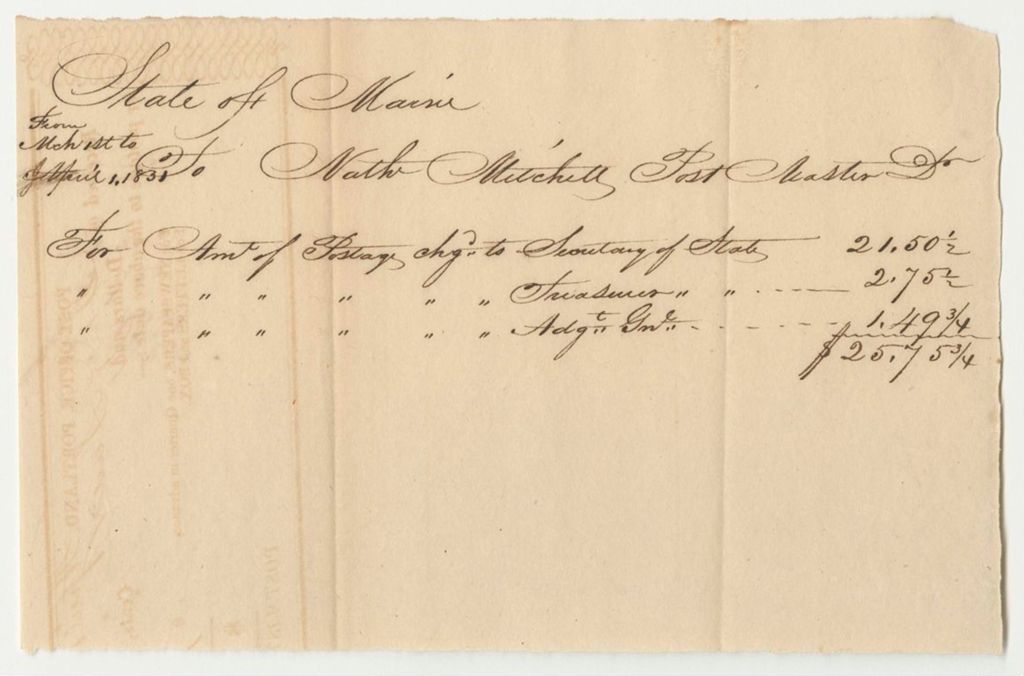 State of Maine
From
Mch 1st to
April 1, 1831
To Nathl Mitchell Post Master Dr
For Amt of Postage chgd to Secretary of State 21.50 1/2
" " " " " " Treasurer " " ----- 2.75 1/2
" " " " " " Adgt Gnl " ------- 1.49 3/4
$25.75 3/4
POST OFFICE PORTLAND